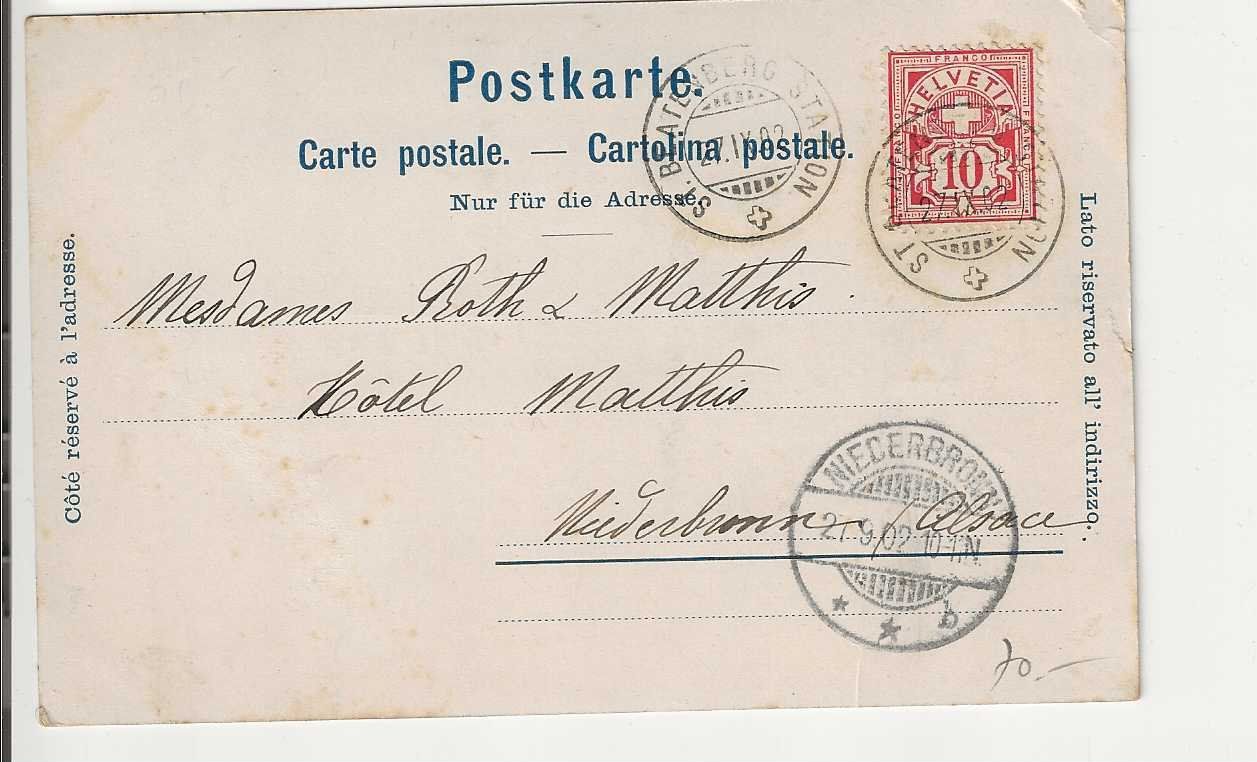 Postkarte.
Carte postale. — Cartolina postale.
Nur für die Adresse.
Côté réservé à l'adresse.
Lato riservato all' indirizzo.
FRANCO
FRANCO
FRANCO
HELVETIA
10
ST. BEATENBERG STATION
27.IX.02
ST. STATION
27.IX.02
Mesdames Roth & Matthis.
Hôtel Matthis
Niederbronn / Alsace.
NIEDERBRONN
9/02 10-11N.
b
70.-